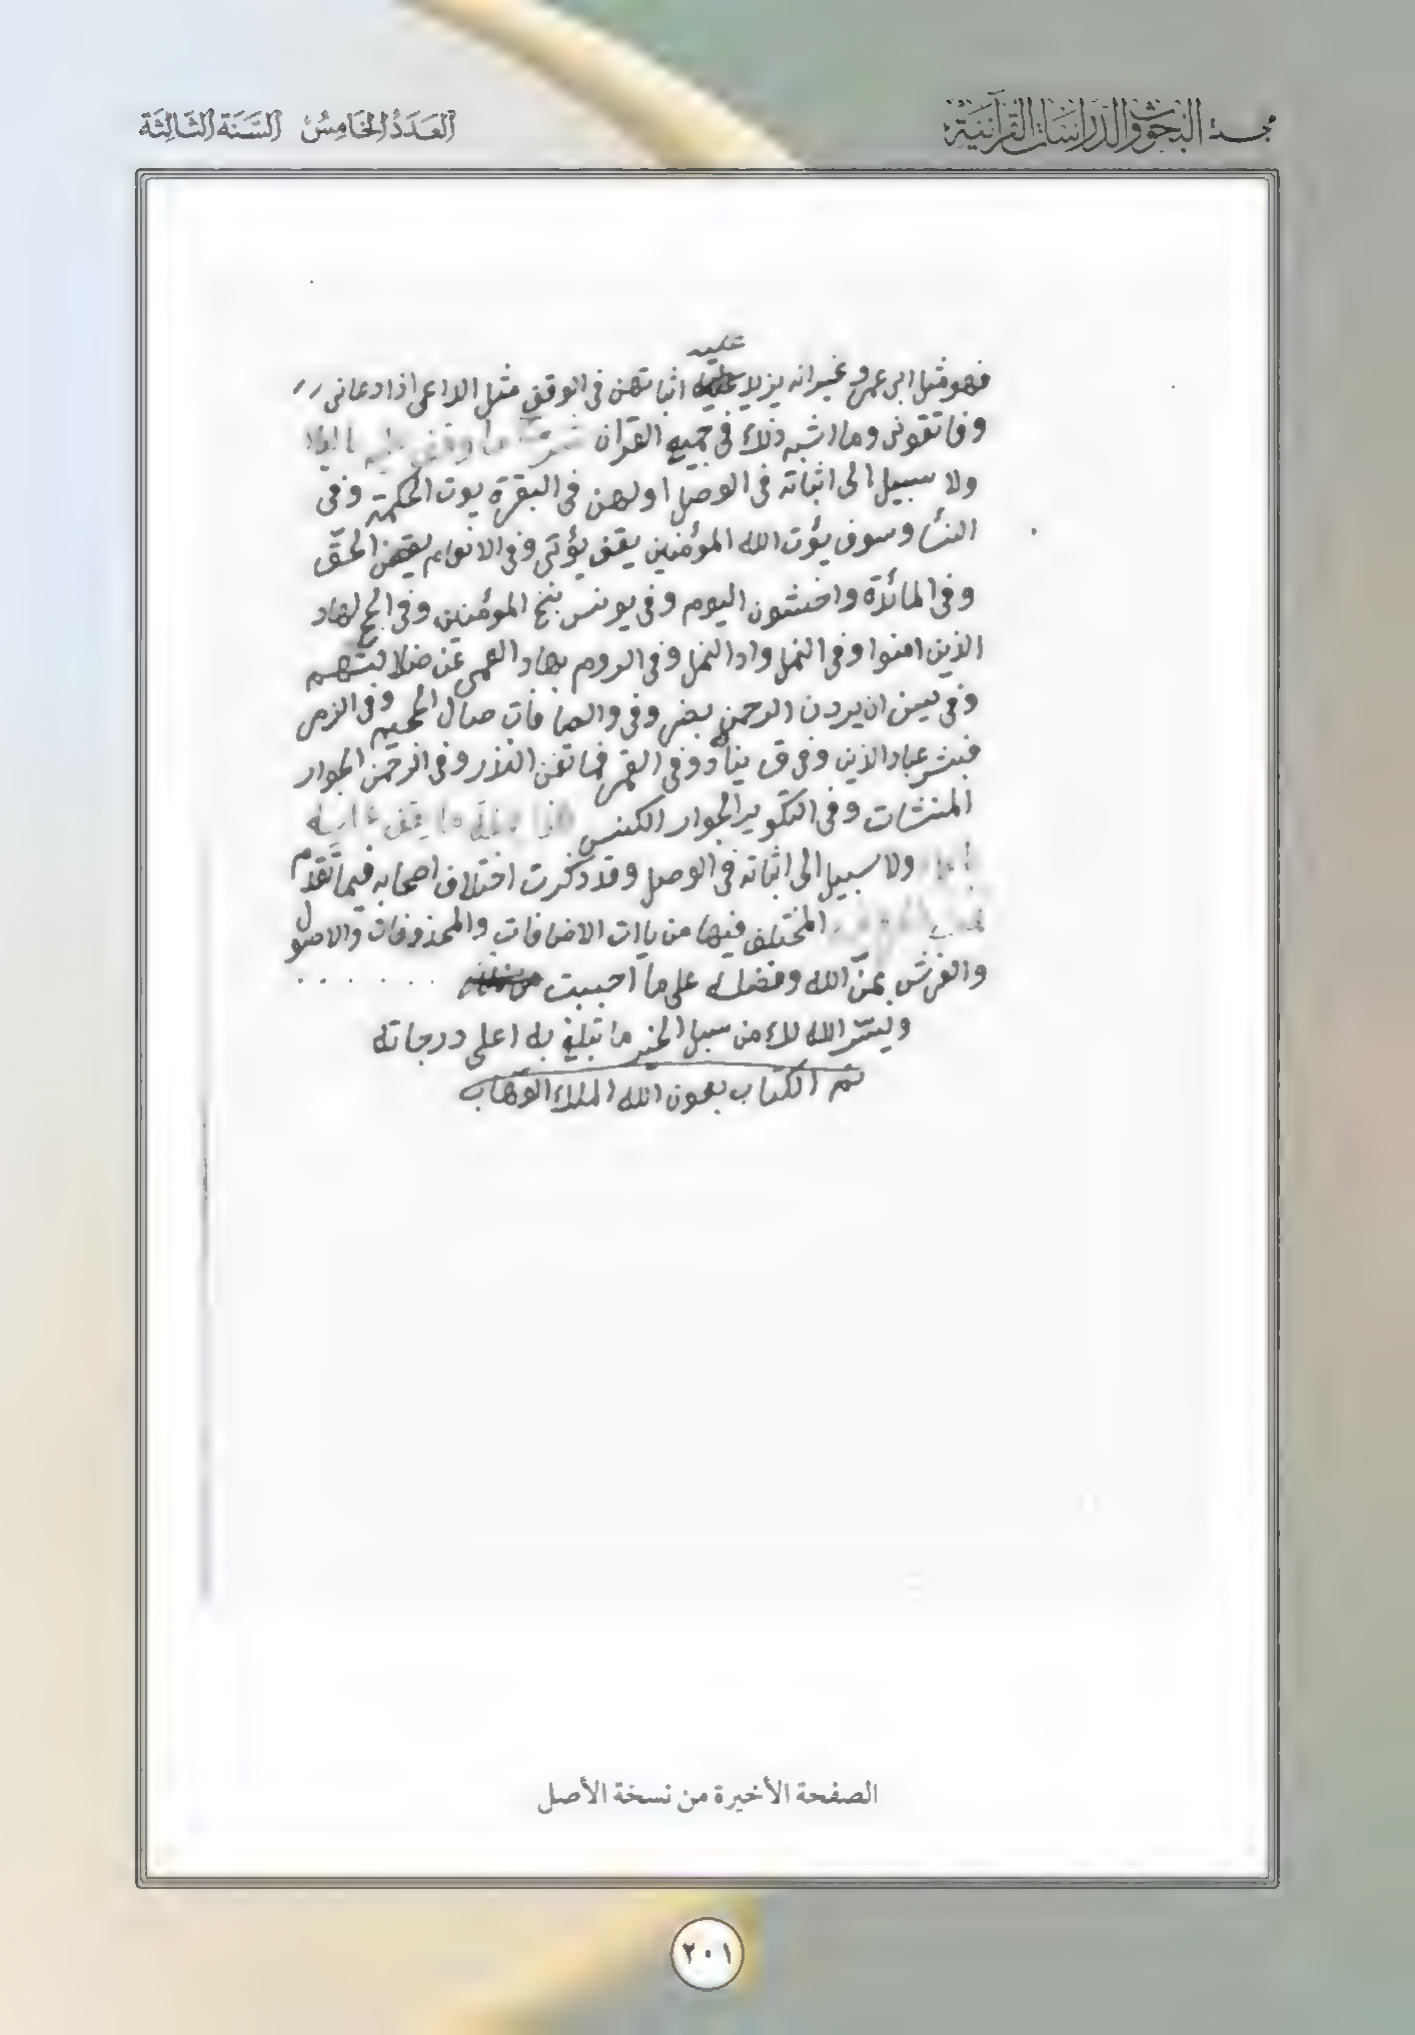 مجلة البحوث والدراسات القرآنية
العدد الخامس السنة الثالثة
عليه
فهو مثل ابى عمرو غير انه يزيد اثباتهن فى الوقف مثل الداعى اذا دعانى
وفاتقونى وما اشبه ذلك فى جميع القرآن
ولا سبيل الى اثباته فى الوصل اولهن فى البقرة يوت الحكمة وفى
النسا وسوف يؤت الله المؤمنين يقف يؤتى وفى الانعام يقض الحق
وفى المائدة واخشون اليوم وفى يونس ننج المؤمنين وفى الحج لهاد
الذين امنوا وفى النمل واد النمل وفى الروم بهاد العمى عن ضلالتهم
وفى يسن ان يردن الرحمن بضر وفى والصافات صال الجحيم وفى الزمر
فبشر عباد الذين وفى ق يناد وفى القمر فما تغن النذر وفى الرحمن الجوار
المنشات وفى التكوير الجوار الكنس
ولا سبيل الى اثباته فى الوصل وقد ذكرت اختلاف اصحابه فيما تقدم
المختلف فيها من ياات الاضافات والمحذوفات والاصول
والفرش بمن الله وفضله على ما احببت
ويسر الله لك من سبل الخير ما تبلغ به اعلى درجاته
تم الكتاب بعون الله الملك الوهاب
الصفحة الأخيرة من نسخة الأصل
٢٠١